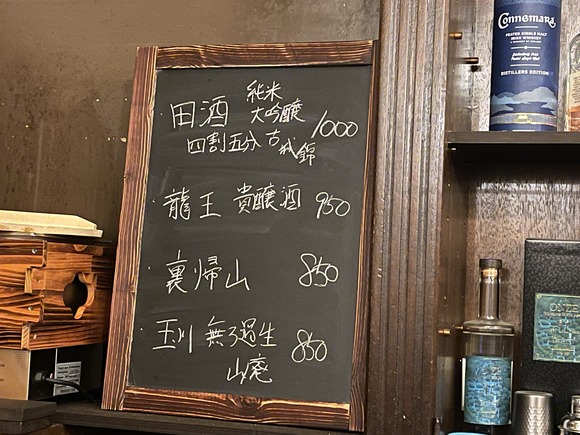 純米
田酒 大吟醸 1000
四割五分 古城錦
龍王 貴醸酒 950
裏帰山 850
玉川 無ろ過生 850
山廃
Connemara
PEATED SINGLE MALT
IRISH WHISKEY
DISTILLERS EDITION